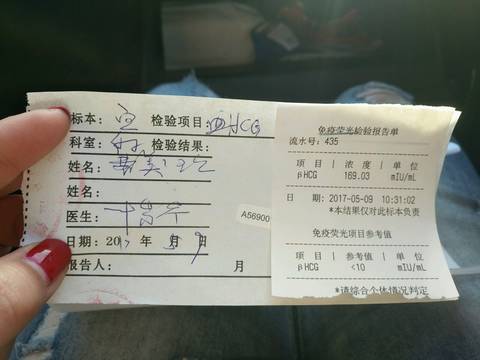 标本：血 检验项目：血HCG
科室：妇 检验结果：
姓名：
姓名：
医生：
日期：2017年5月9日
报告人： 月
A56900
免疫荧光检验报告单
流水号：435
项目 浓度 单位
βHCG 169.03 mIU/mL
日期：2017-05-09 10:31:02
*本结果仅对此标本负责
免疫荧光项目参考值
项目 参考值 单位
βHCG <10 mIU/mL
*请综合个体情况判定